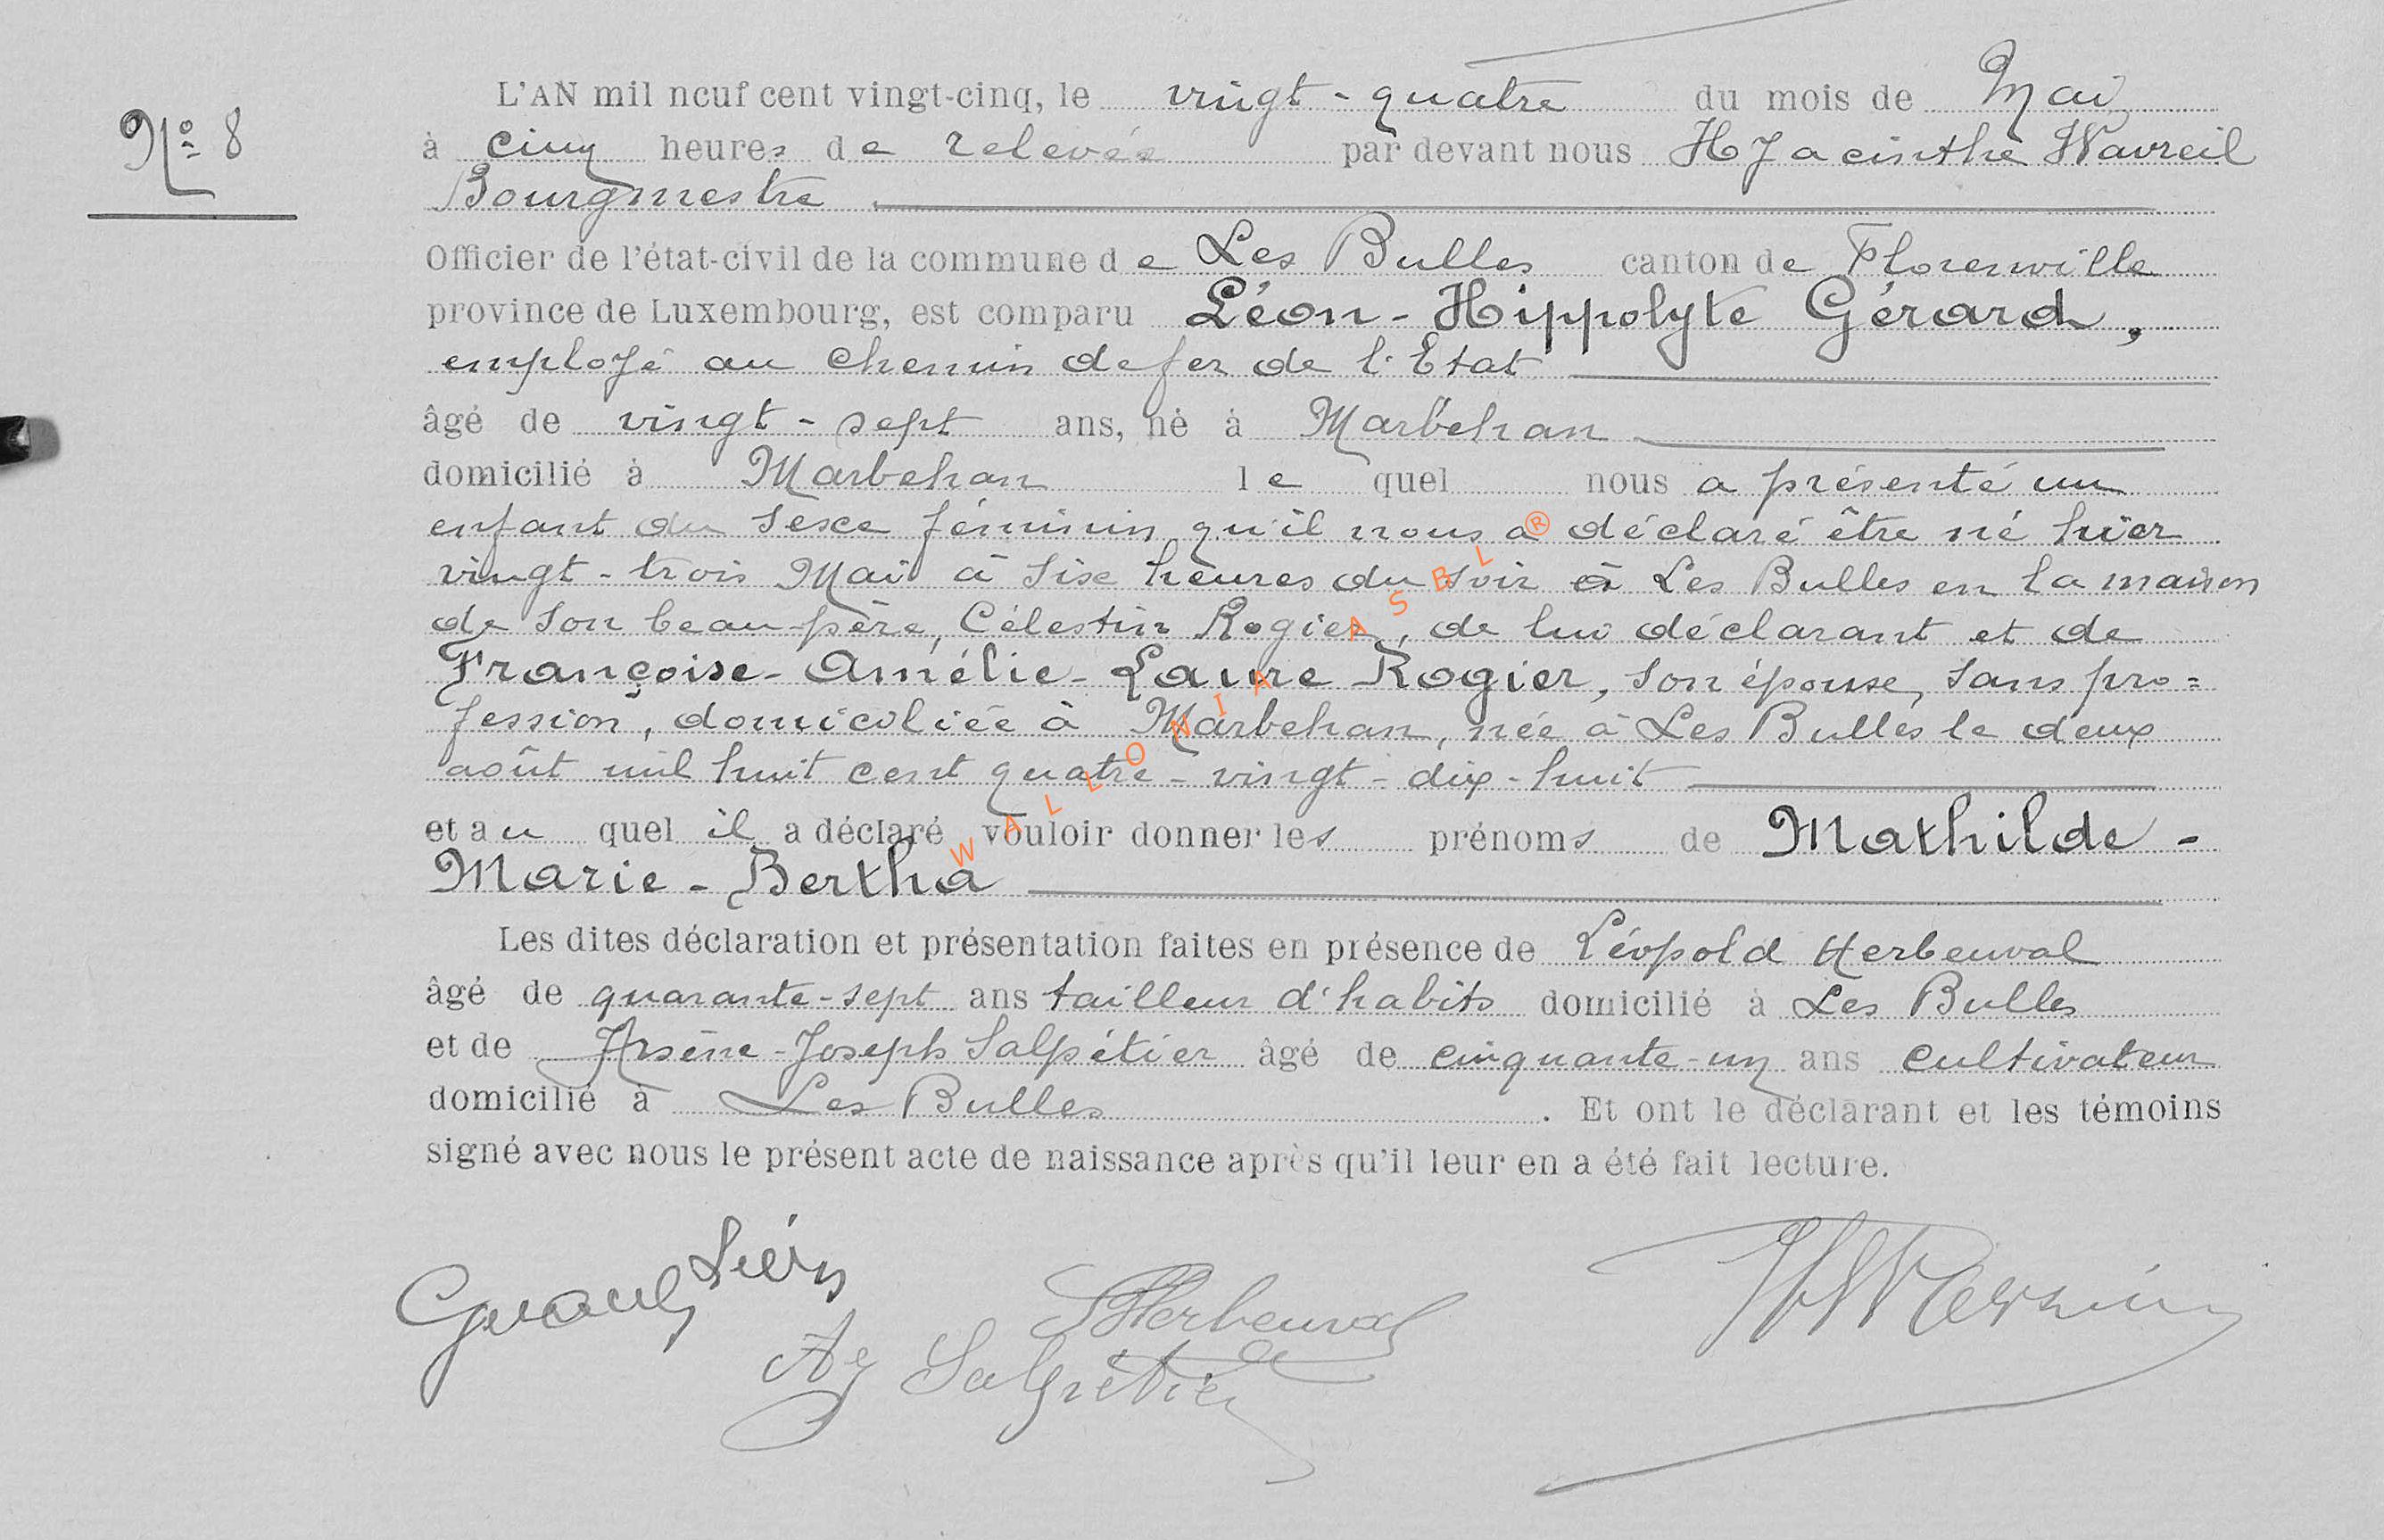 N° 8
L'AN mil neuf cent vingt-cinq, le vingt-quatre du mois de Mai
à cinq heures de relevée par devant nous Hyacinthe Wavreil
Bourgmestre
Officier de l'état-civil de la commune de Les Bulles canton de Florenville
province de Luxembourg, est comparu Léon-Hippolyte Gérard,
employé au chemin de fer de l'Etat
âgé de vingt-sept ans, né à Marbehan
domicilié à Marbehan lequel nous a présenté un
enfant du sexe féminin qu'il nous a déclaré être né hier
vingt-trois Mai à six heures du soir à Les Bulles en la maison
de son beau-père, Célestin Rogier, de lui déclarant et de
Françoise-Amélie-Laure Rogier, son épouse, sans pro=
fession, domiciliée à Marbehan, née à Les Bulles le deux
août mil huit cent quatre-vingt-dix-huit
et auquel il a déclaré vouloir donner les prénoms de Mathilde-
Marie-Bertha
Les dites déclaration et présentation faites en présence de Léopold Herbeuval
âgé de quarante-sept ans tailleur d'habits domicilié à Les Bulles
et de Arsène-Joseph Salpétier âgé de cinquante-un ans cultivateur
domicilié à Les Bulles. Et ont le déclarant et les témoins
signé avec nous le présent acte de naissance après qu'il leur en a été fait lecture.
Gérard Léon
L Herbeuval
Salpétier
WALLONIA ASBL ®